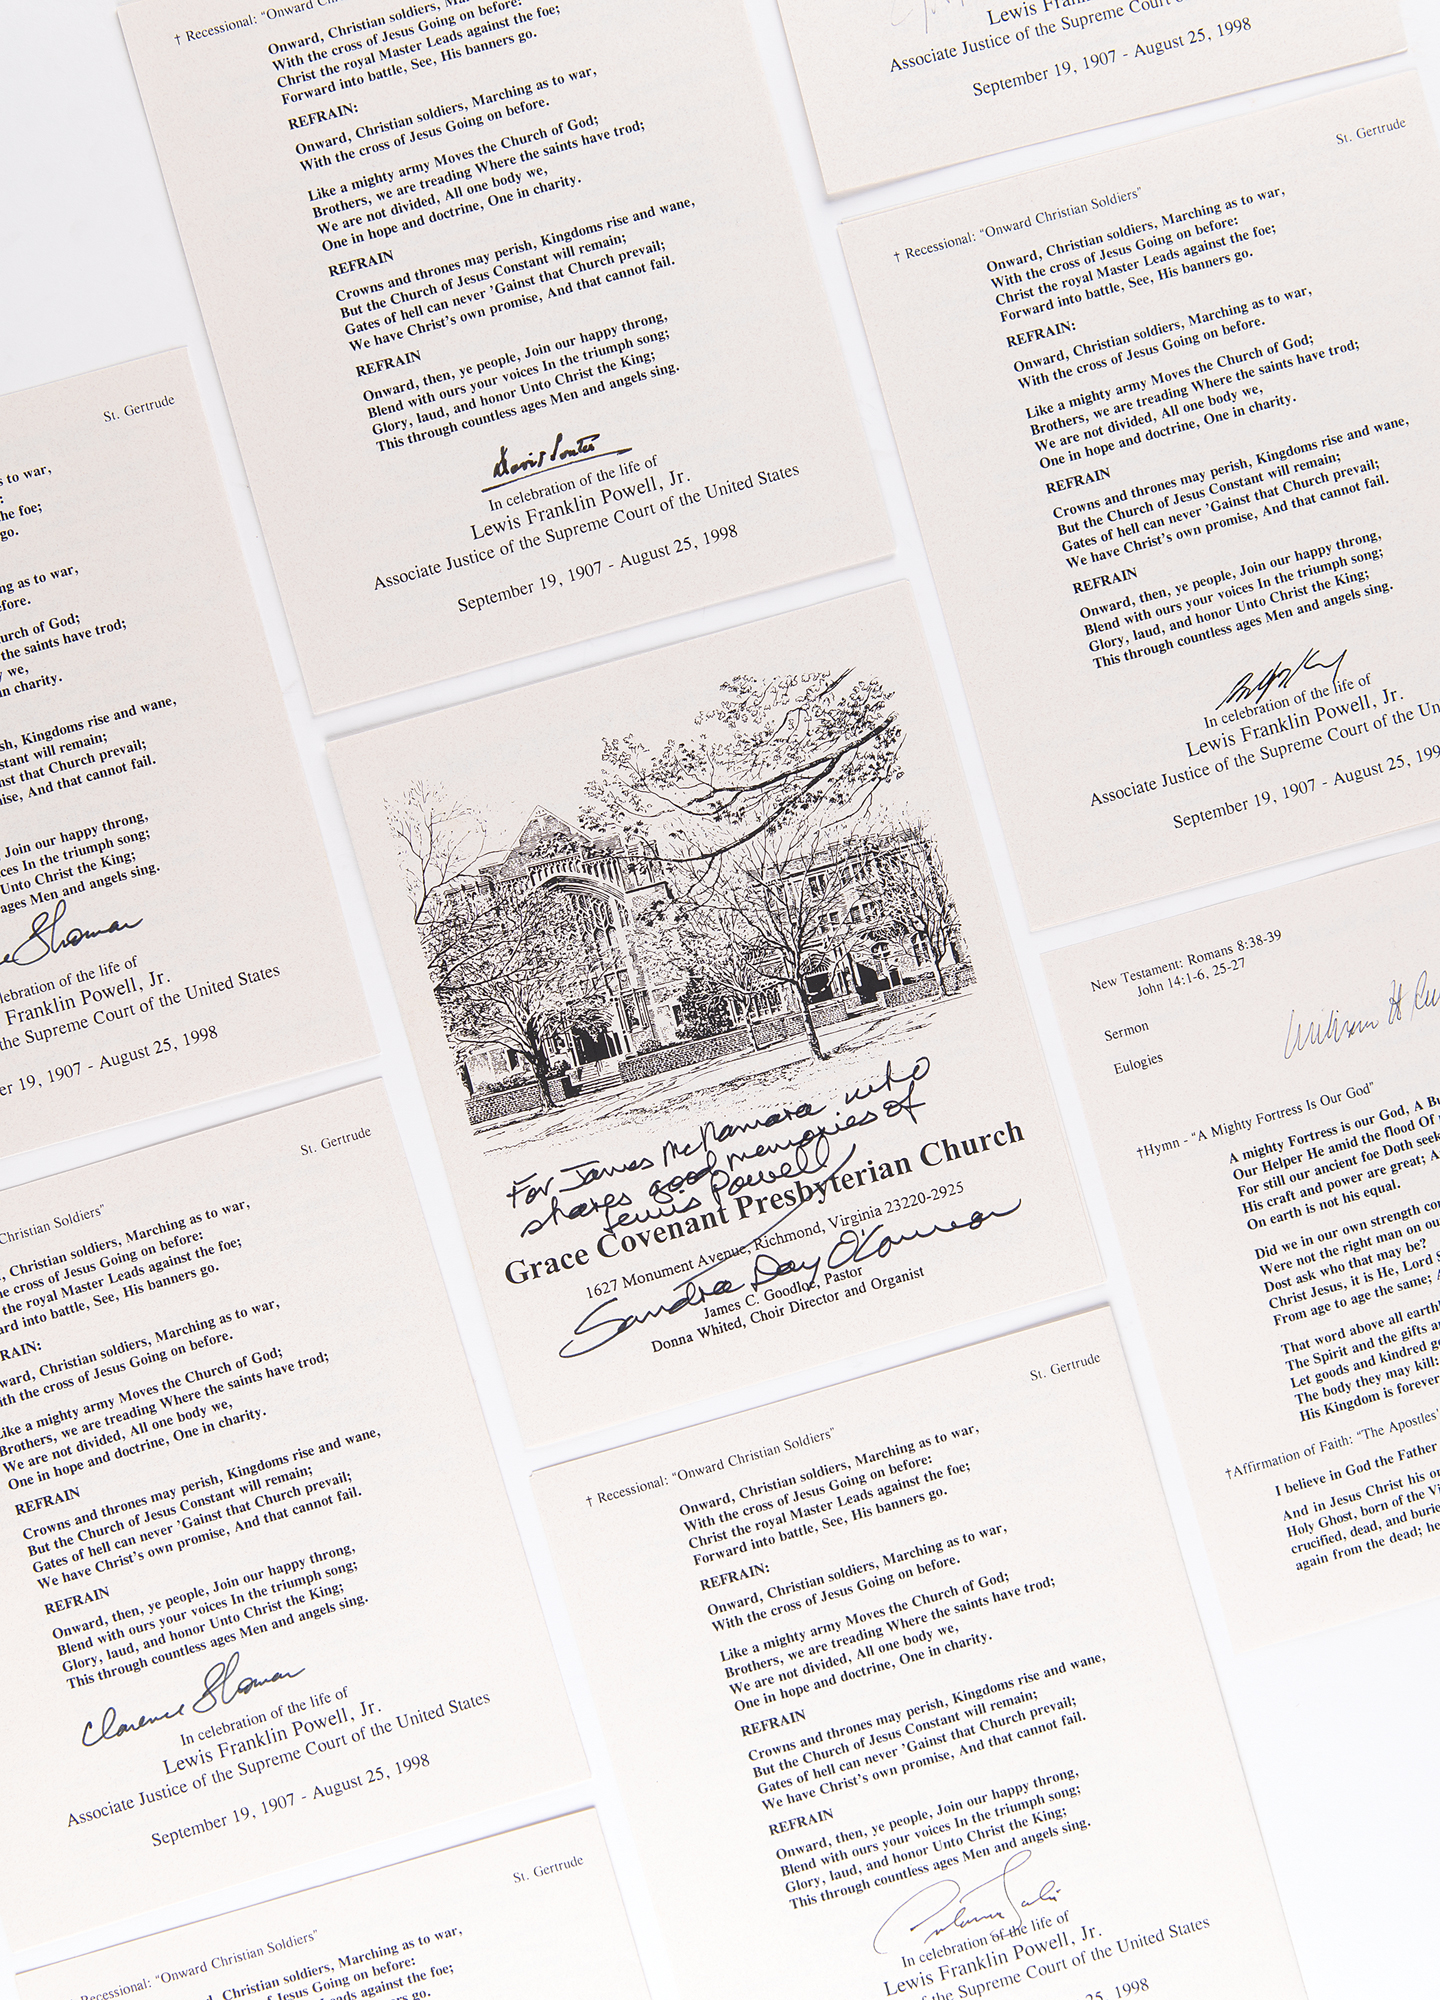 † Recessional: "Onward
Onward, Christian soldiers,
With the cross of Jesus Going on before:
Christ the royal Master Leads against the foe;
Forward into battle, See, His banners go.
REFRAIN:
Onward, Christian soldiers, Marching as to war,
With the cross of Jesus Going on before.
Like a mighty army Moves the Church of God;
Brothers, we are treading Where the saints have trod;
We are not divided, All one body we,
One in hope and doctrine, One in charity.
REFRAIN
Crowns and thrones may perish, Kingdoms rise and wane,
But the Church of Jesus Constant will remain;
Gates of hell can never 'Gainst that Church prevail;
We have Christ's own promise, And that cannot fail.
REFRAIN
Onward, then, ye people, Join our happy throng,
Blend with ours your voices In the triumph song;
Glory, laud, and honor Unto Christ the King;
This through countless ages Men and angels sing.
David Souter
In celebration of the life of
Lewis Franklin Powell, Jr.
Associate Justice of the Supreme Court of the United States
September 19, 1907 - August 25, 1998
Lewis
Associate Justice of the Supreme Court of the United States
September 19, 1907 - August 25, 1998
St. Gertrude
† Recessional: "Onward Christian Soldiers"
Onward, Christian soldiers, Marching as to war,
With the cross of Jesus Going on before:
Christ the royal Master Leads against the foe;
Forward into battle, See, His banners go.
REFRAIN:
Onward, Christian soldiers, Marching as to war,
With the cross of Jesus Going on before.
Like a mighty army Moves the Church of God;
Brothers, we are treading Where the saints have trod;
We are not divided, All one body we,
One in hope and doctrine, One in charity.
REFRAIN
Crowns and thrones may perish, Kingdoms rise and wane,
But the Church of Jesus Constant will remain;
Gates of hell can never 'Gainst that Church prevail;
We have Christ's own promise, And that cannot fail.
REFRAIN
Onward, then, ye people, Join our happy throng,
Blend with ours your voices In the triumph song;
Glory, laud, and honor Unto Christ the King;
This through countless ages Men and angels sing.
In celebration of the life of
Lewis Franklin Powell, Jr.
Associate Justice of the Supreme Court of the Un
September 19, 1907 - August 25, 199
St. Gertrude
s to war,
he foe;
go.
ng as to war,
fore.
urch of God;
the saints have trod;
we,
in charity.
sh, Kingdoms rise and wane,
stant will remain;
nst that Church prevail;
ise, And that cannot fail.
, Join our happy throng,
ces In the triumph song;
Unto Christ the King;
ages Men and angels sing.
e Thomas
lebration of the life of
Franklin Powell, Jr.
the Supreme Court of the United States
er 19, 1907 - August 25, 1998
For James McNamara who
shares good memories of
Lewis Powell
Grace Covenant Presbyterian Church
1627 Monument Avenue, Richmond, Virginia 23220-2925
Sandra Day O'Connor
James C. Goodloe, Pastor
Donna Whited, Choir Director and Organist
New Testament: Romans 8:38-39
John 14:1-6, 25-27
Sermon
William H
Eulogies
†Hymn - "A Mighty Fortress Is Our God"
A mighty Fortress is our God, A Bu
Our Helper He amid the flood Of
For still our ancient foe Doth seek
His craft and power are great; A
On earth is not his equal.
Did we in our own strength con
Were not the right man on ou
Dost ask who that may be?
Christ Jesus, it is He, Lord S
From age to age the same; A
That word above all earthl
The Spirit and the gifts a
Let goods and kindred g
The body they may kill:
His Kingdom is forever
†Affirmation of Faith: "The Apostles'
I believe in God the Father
And in Jesus Christ his on
Holy Ghost, born of the Vi
crucified, dead, and burie
again from the dead; he
St. Gertrude
Christian Soldiers"
, Christian soldiers, Marching as to war,
e cross of Jesus Going on before:
the royal Master Leads against the foe;
ard into battle, See, His banners go.
RAIN:
ward, Christian soldiers, Marching as to war,
ith the cross of Jesus Going on before.
Like a mighty army Moves the Church of God;
Brothers, we are treading Where the saints have trod;
We are not divided, All one body we,
One in hope and doctrine, One in charity.
REFRAIN
Crowns and thrones may perish, Kingdoms rise and wane,
But the Church of Jesus Constant will remain;
Gates of hell can never 'Gainst that Church prevail;
We have Christ's own promise, And that cannot fail.
REFRAIN
Onward, then, ye people, Join our happy throng,
Blend with ours your voices In the triumph song;
Glory, laud, and honor Unto Christ the King;
This through countless ages Men and angels sing.
Clarence Thomas
In celebration of the life of
Lewis Franklin Powell, Jr.
Associate Justice of the Supreme Court of the United States
September 19, 1907 - August 25, 1998
St. Gertrude
† Recessional: "Onward Christian Soldiers"
Onward, Christian soldiers, Marching as to war,
With the cross of Jesus Going on before:
Christ the royal Master Leads against the foe;
Forward into battle, See, His banners go.
REFRAIN:
Onward, Christian soldiers, Marching as to war,
With the cross of Jesus Going on before.
Like a mighty army Moves the Church of God;
Brothers, we are treading Where the saints have trod;
We are not divided, All one body we,
One in hope and doctrine, One in charity.
REFRAIN
Crowns and thrones may perish, Kingdoms rise and wane,
But the Church of Jesus Constant will remain;
Gates of hell can never 'Gainst that Church prevail;
We have Christ's own promise, And that cannot fail.
REFRAIN
Onward, then, ye people, Join our happy throng,
Blend with ours your voices In the triumph song;
Glory, laud, and honor Unto Christ the King;
This through countless ages Men and angels sing.
In celebration of the life of
Lewis Franklin Powell, Jr.
of the Supreme Court of the United States
25, 1998
St. Gertrude
Recessional: "Onward Christian Soldiers"
Christian soldiers, Marching as to war,
of Jesus Going on before:
ads against the foe;
rs go.